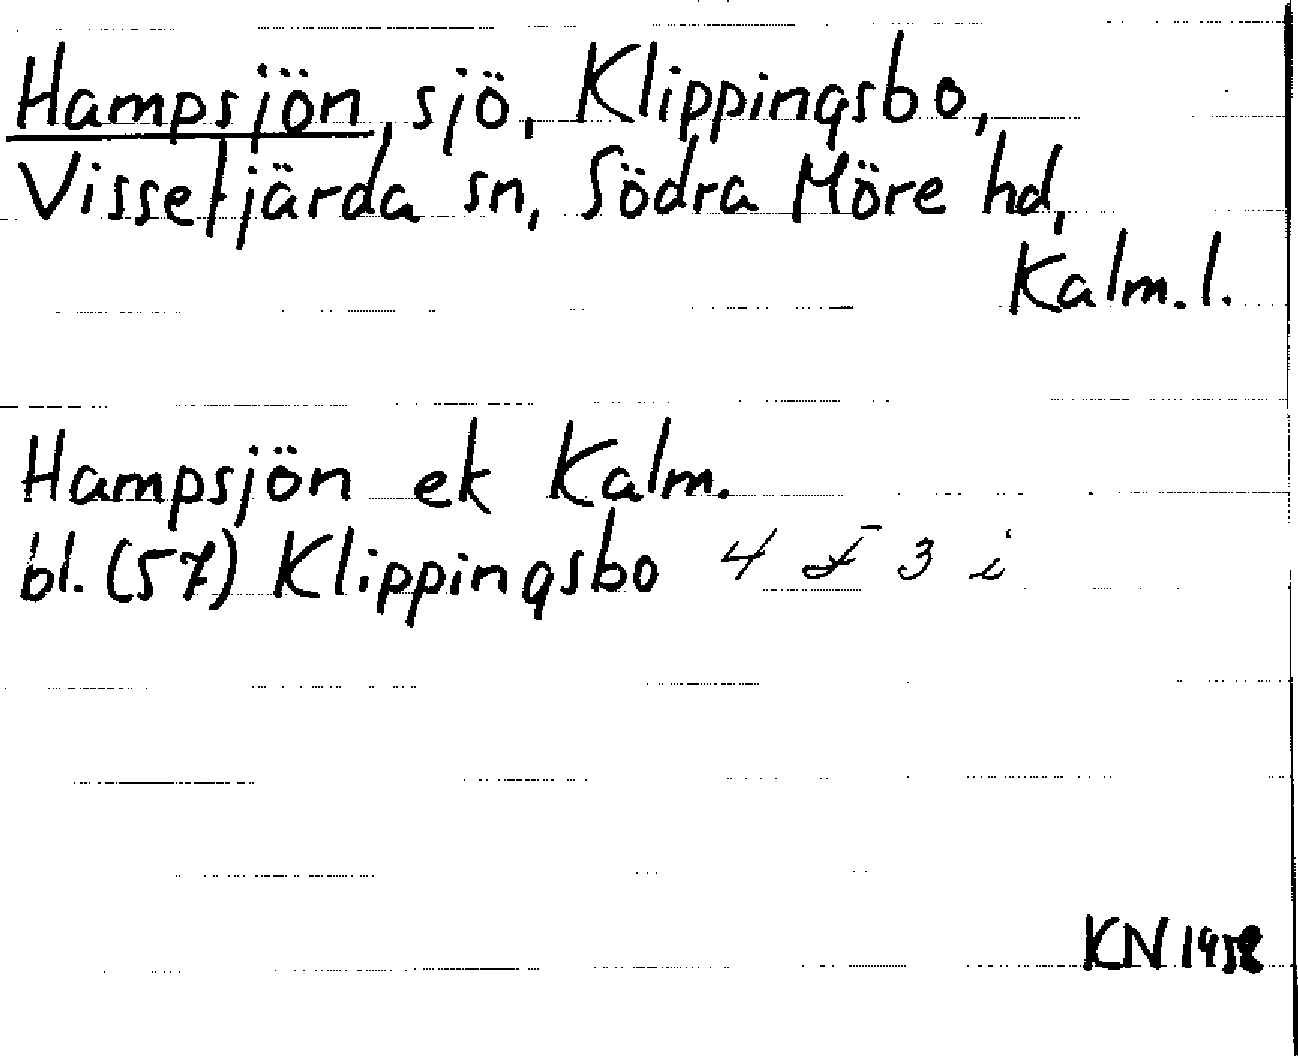 Hampsjön, sjö, Klippingsbo,
Vissefjärda sn, Södra Möre hd,
Kalm. l.
Hampsjön ek Kalm.
bl. (57) Klippingsbo 4 f 3 i
KN 1958